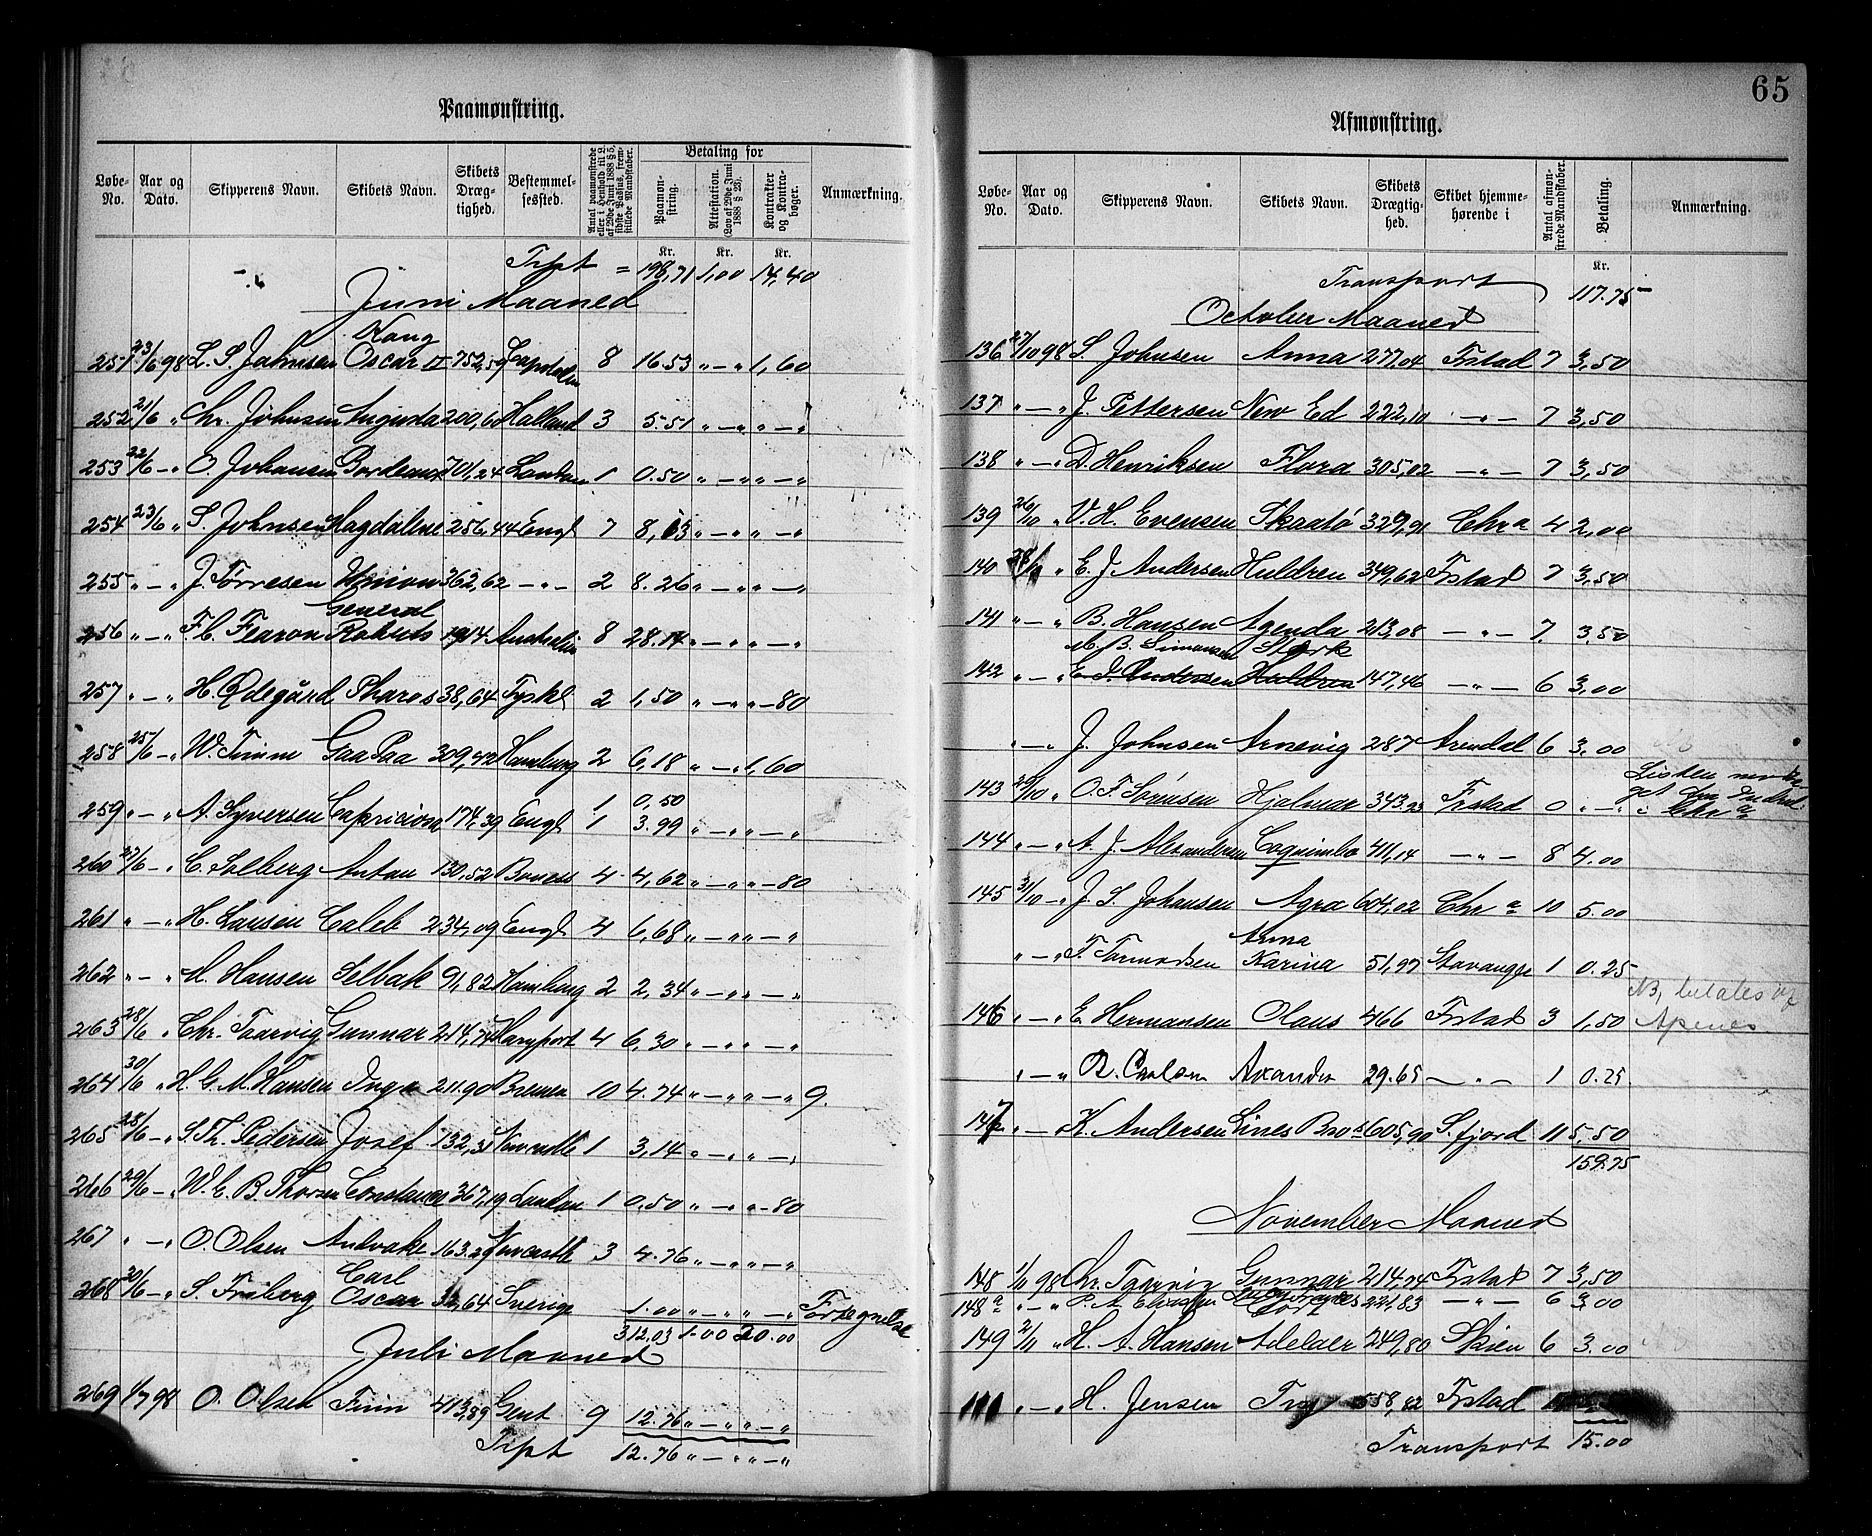 Paamønstring.
Løbe-No. Aar og Dato. Skipperens Navn. Skibets Navn. Skibets Dræg-tighed. Bestemmel-sessted. Antal paamønstrede eller i Henhold til L. af 29de Juni 1888 § 5, sidste Passus, frem-stillede Mandskaber. Betaling for Paamøn-string. Attestation. (Lov af 29de Juni 1888 § 23). Kontrakter og Kontra-bøger. Anmærkning.
Kr. Kr. Kr.
Tspt = 198,71 1,00 14,40
Juni Maaned
Kong
251 23/6 98 L. S. Johnsen Oscar II 752,59 8 16.53 " — " 1,60
252 21/6 " Chr. Johnsen 200,60 Halland 3 5.51 " — " " — "
253 22/6 — " O. Johansen Bordeaux 701,24 London 1 0.50 " — " " — "
254 23/6 " S. Johnsen Magdalene 256,44 Engl 7 8,13 " — " " — "
255 " — " J. Tørresen Union 362,62 — " — 2 8.26 " — " " — "
General
256 " — " F C. Fearon Roberts 1914 Australien 8 28.14 " — " " — "
257 " — " H. Ødegård Pharos 38,64 Tyskl 2 1,50 " — " " — 80
258 25/6 — " W. Timm GaaPaa 309,72 Hamburg 2 6,18 " — " 1,60
259 " — " A. Syversen 174,39 Engl 1 0,50
1 3.99 " — " " — "
260 27/6 — " C. Solberg Anton 130,52 Boness 4 4,62 " — " " — 80
261 " — " H. Larsen Caleb 234,09 Engl 4 6,68 " — " " — "
262 " — " M. Hansen Selbak 91,82 Hamburg 2 2,34 " — " " — "
263 28/6 " Chr. Taarvig Gunnar 214,74 Haryport 4 6,30 " — " " — "
264 30/6 " H. G. M. Hansen Inga 211.90 Bremen 10 4.74 " — " " — " 9.
265 28/6 — " S. Th. Pedersen Josef 132,31 Newcastle 1 3,14 " — " " — "
266 29/6 — " W. E. B. Thorsen Constance 367,19 London 1 0,50 " — " " — 80
267 " — " O. Olsen Andvake 163.29 Newcastle 3 4.76 " — " " — "
Carl
268 30/6 — " S. Friberg Oscar 32,64 Sverige 1.00 " — " " — " Fortegnelse
312,03 1.00 20.00
Juli Maaned
269 1/7 98 O. Olsen Finn 413,89 Gent 9 12.76 " — " " — "
Tspt 12.76 " — " " — "
65
Afmønstring.
Løbe-No. Aar og Dato. Skipperens Navn. Skibets Navn. Skibets Drægtig-hed. Skibet hjemme-hørende i Antal afmøn-strede Mandskaber. Betaling. Anmærkning.
Kr.
Transport 117.75
October Maaned
136 27/10 98 S. Johnsen Anna 277,04 Frstad 7 3,50
137 " — " J. Pettersen New Ed 222,10 — " — 7 3,50
138 " — " D. Henriksen Flora 305,02 — " — 7 3,50
139 26/10 " V. H. Evensen Skaatö 329,91 Chr a 4 2,00
140 " E. J. Andersen Huldren 349,62 Frstad 7 3,50
141 " — " B. Hansen Agenda 213,08 — " — 7. 3,50
M. B. Simonsen Stærk
142 " — " E. J. Andersen Huldren 147,46 — " — 6 3,00
" — " J. Johnsen Arnevig 287 Arendal 6 3,00
143 29/10 " O. F. Sörnsen Hjalmar 343.23 Frstad 0 " — " Listen
Chr a
144 " — " A. J. Alexandersen Coquimbo 411,14 — " — 8 4.00
145 31/10 — " J. S. Johansen Agra 604,02 Chr a 10 5.00
Anna
" — " F. Tormodsen Karina 51,97 Stavanger 1 0.25
146 " — " E. Hermansen Olaus 466 Frstad 3 1,50 NB, betales af Apenes
" — " Axandra 29.65 — " — 1 0.25
147 " — " K. Andersen Lines Bros 605,90 S.fjord 11 5,50
159.75
November Maaned
148 1/11 98 Chr. Taarvig Gunnar 214,74 Frstad 7 3,50
148 a " — " 221,83 — " — 6 3,00
149 2/11 " H. A. Hansen Adelaer 249,80 Skien 6 3.00
" — " H. Jensen 558,82 Frstad
Transport 15.00